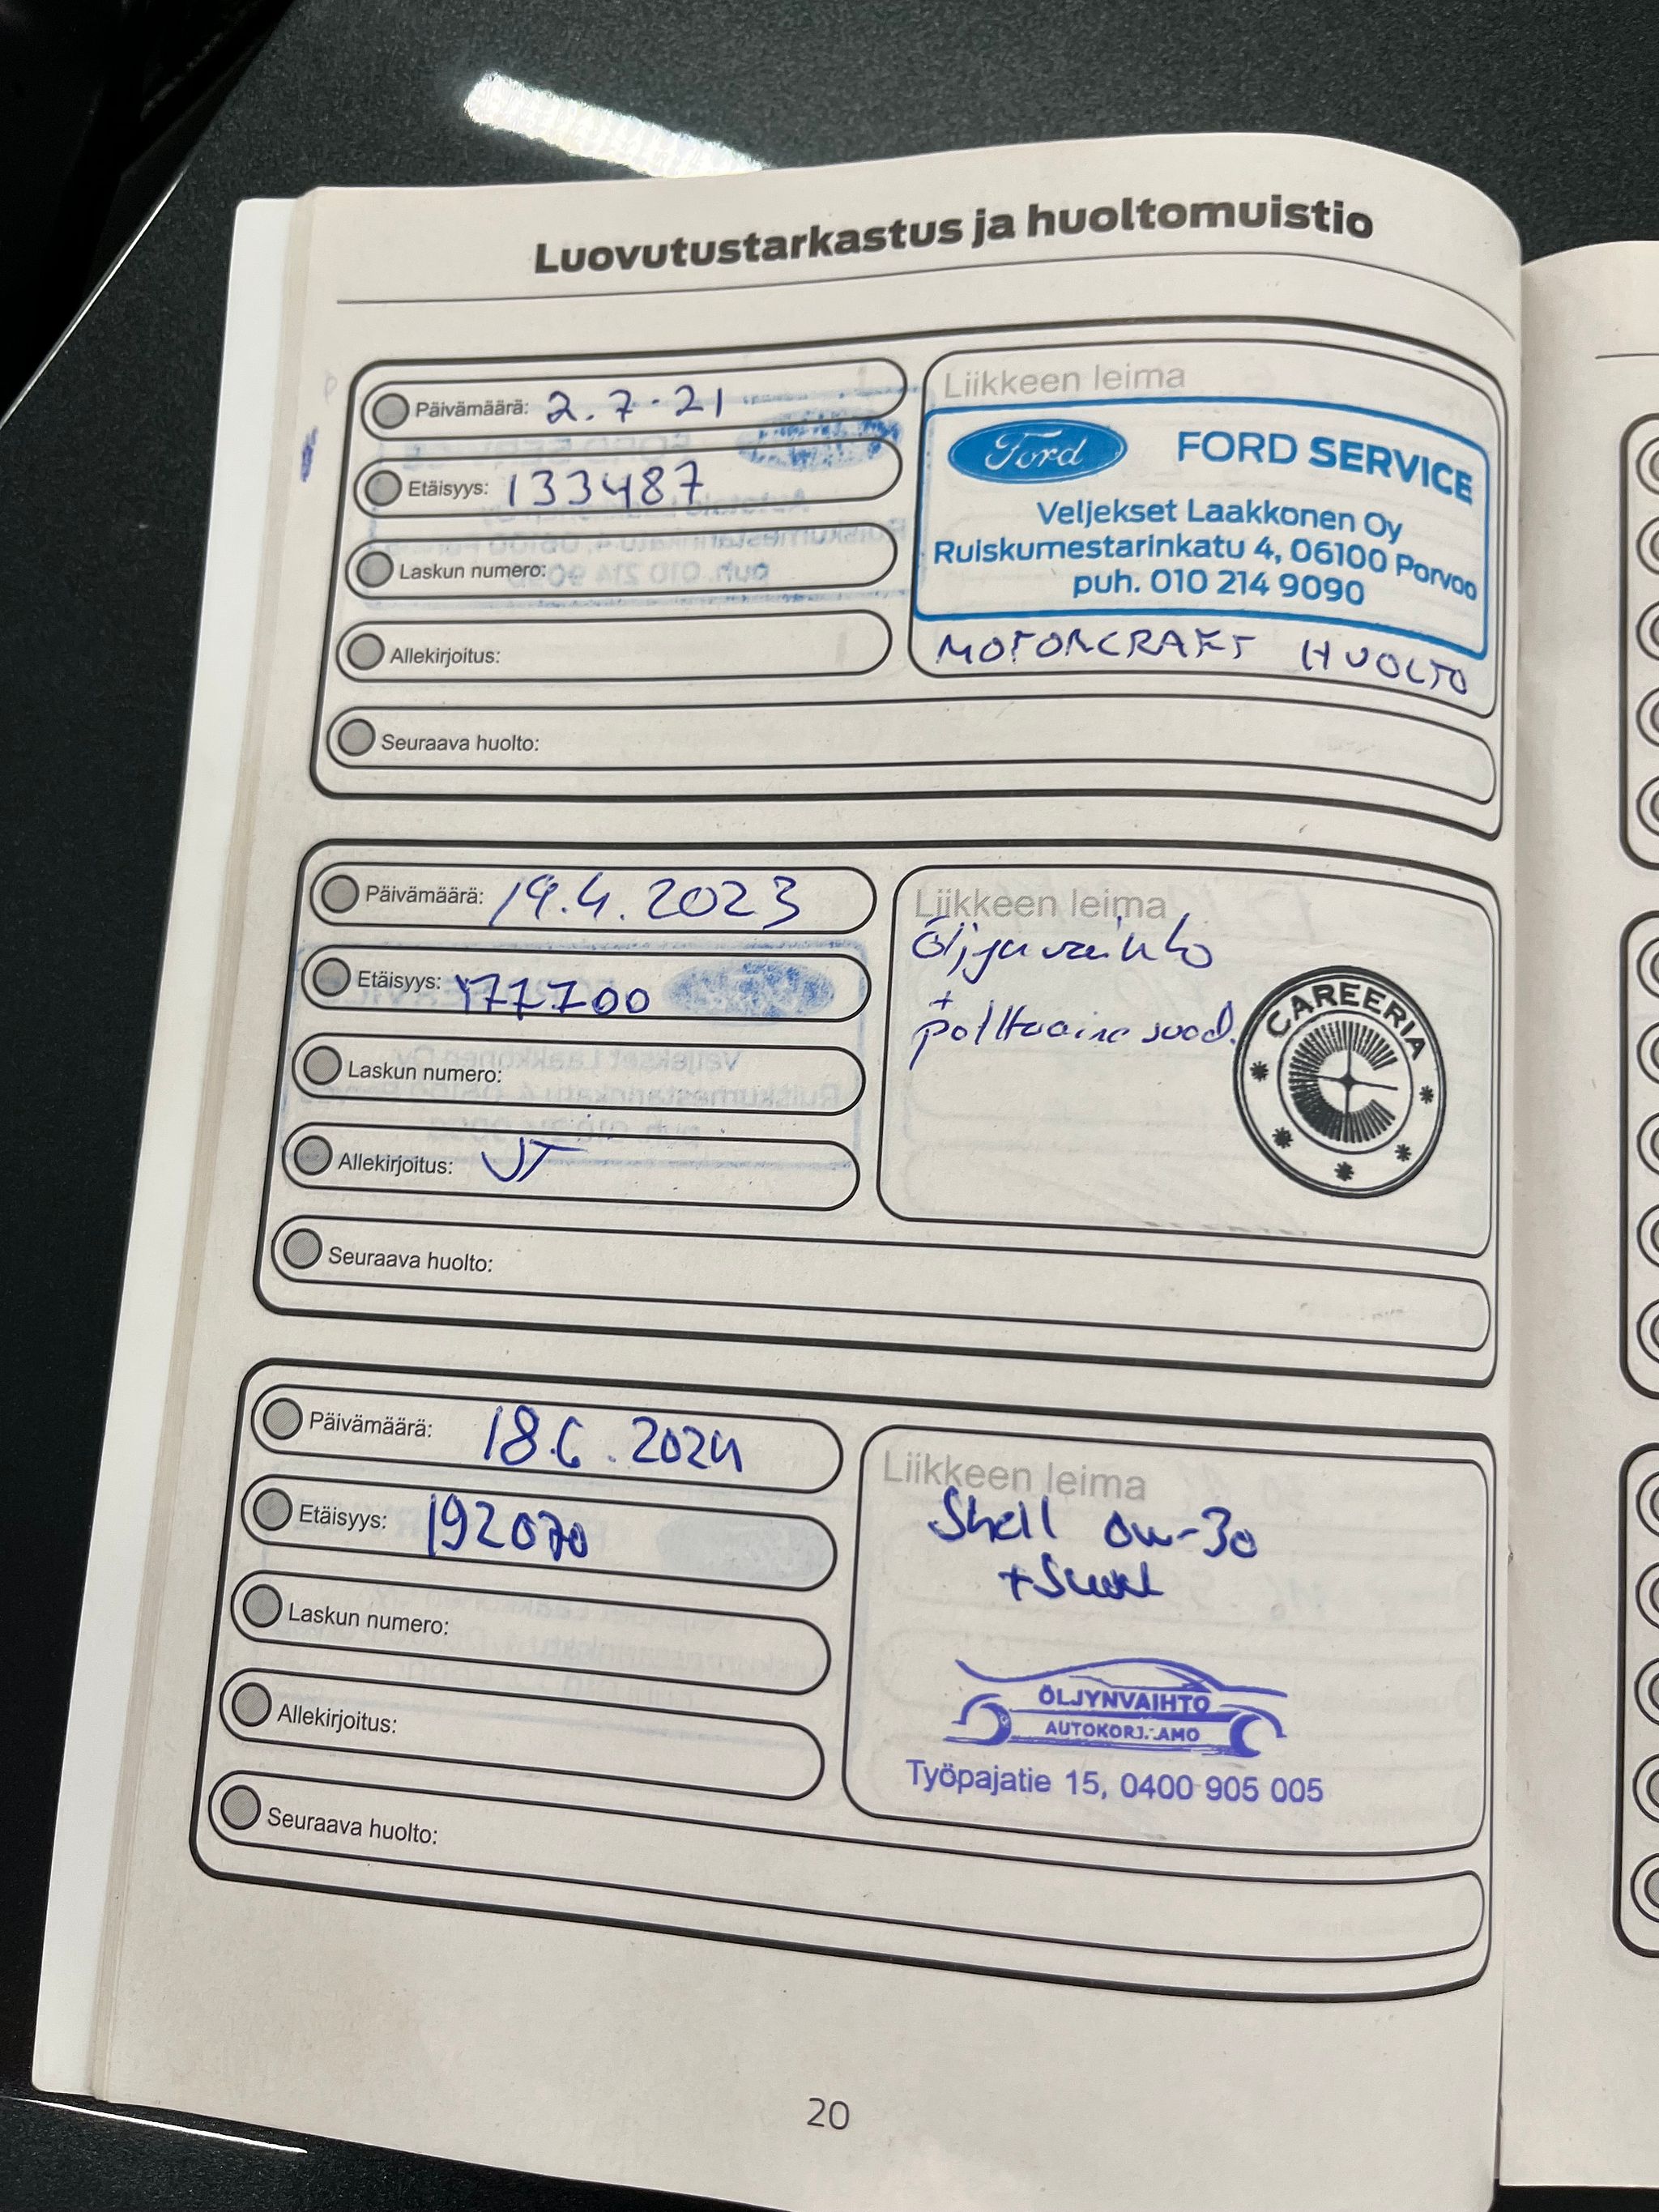 Luovutustarkastus ja huoltomuistio
Päivämäärä: 2.7.21
Etäisyys: 133487
Laskun numero:
Allekirjoitus:
Seuraava huolto:
Liikkeen leima
Ford FORD SERVICE
Veljekset Laakkonen Oy
Ruiskumestarinkatu 4, 06100 Porvoo
puh. 010 214 9090
MOTORCRAFT HUOLTO
Päivämäärä: 19.4.2023
Etäisyys: 177700
Laskun numero:
Allekirjoitus: JT
Seuraava huolto:
Liikkeen leima
öljynvaihto
+
polttoaine suod.
CAREERIA
Päivämäärä: 18.6.2024
Etäisyys: 192070
Laskun numero:
Allekirjoitus:
Seuraava huolto:
Liikkeen leima
Shell 0w-30
ÖLJYNVAIHTO
Työpajatie 15, 0400 905 005
20